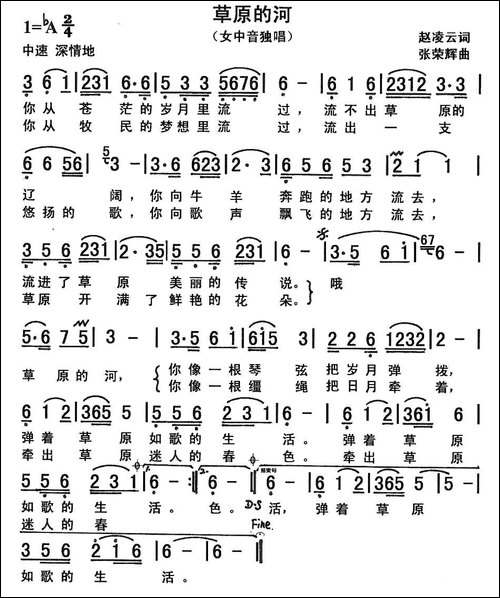 草原的河
1=♭A 2/4
（女中音独唱）
赵凌云词
中速 深情地
张荣辉曲
3 6 1 | 231 6·6 | 5 3 3 5676 | 6 - | 6 1 | 2312 3·3 |
你从苍茫的岁月里流过，流不出草原的
你从牧民的梦想里流过，流出一支
6 6 56 | 5 3 - | 3·6 623 | 2· 3 | 6 5 6 5 3 | 2 1 1 |
辽阔，你向牛羊奔跑的地方流去，
悠扬的歌，你向歌声飘飞的地方流去，
3 5 6 231 | 2·35 | 5 5 6 231 | 6 - | 3·5 6 1 | 67 6 - |
流进了草原美丽的传说。哦
草原开满了鲜艳的花朵。
5·6 7 5 | 3 - | 3·5 6 1 | 615 3 | 2 2 6 1232 | 2 - |
草原的河，你像一根琴弦把岁月弹拨，
你像一根缰绳把日月牵着，
6 1 2 | 365 5 | 5 5 6 2 3 1 | 6 - | 6 1 2 | 361 6 |
弹着草原如歌的生活。弹着草原
牵出草原迷人的春色。牵出草原
5 5 6 2 3 1 | 6 - :| 6 - | 6 - | 6 1 2 | 365 5 | 5 - |
1.
2.
结束句
如歌的生活。色。D·S活，弹着草原
迷人的春 Fine.
3 5 6 2 1 6 | 6 - | 6 - |
如歌的生活。